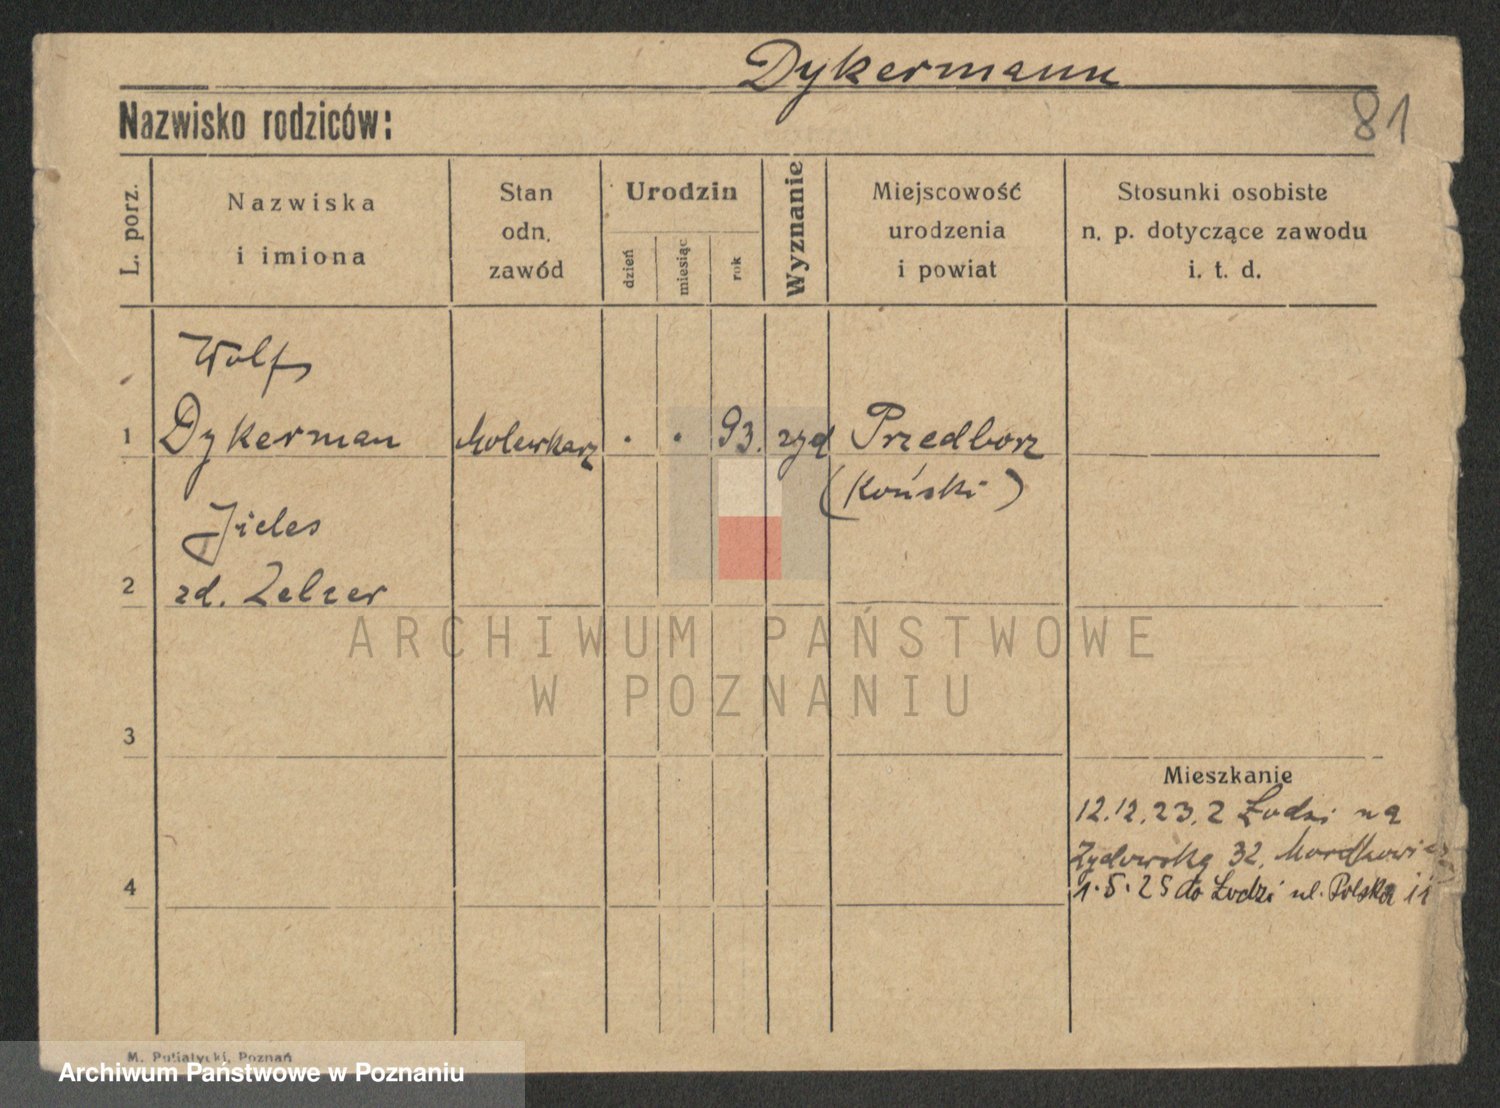 Dykermann
81
Nazwisko rodziców:
L. porz.
Nazwiska
i imiona
Stan
odn.
zawód
Urodzin
dzień
miesiąc
rok
Wyznanie
Miejscowość
urodzenia
i powiat
Stosunki osobiste
n. p. dotyczące zawodu
i. t. d.
Wolf
1 Dykerman . . 93. żyd Przedborz
(Koński)
2 zd. Zelcer
ARCHIWUM PAŃSTWOWE
W POZNANIU
3
Mieszkanie
12.12.23. z Łodzi na
Żydowską 32.
4
1.5.25 do Łodzi ul. Polska 11
M. Putiatycki, Poznań
Archiwum Państwowe w Poznaniu